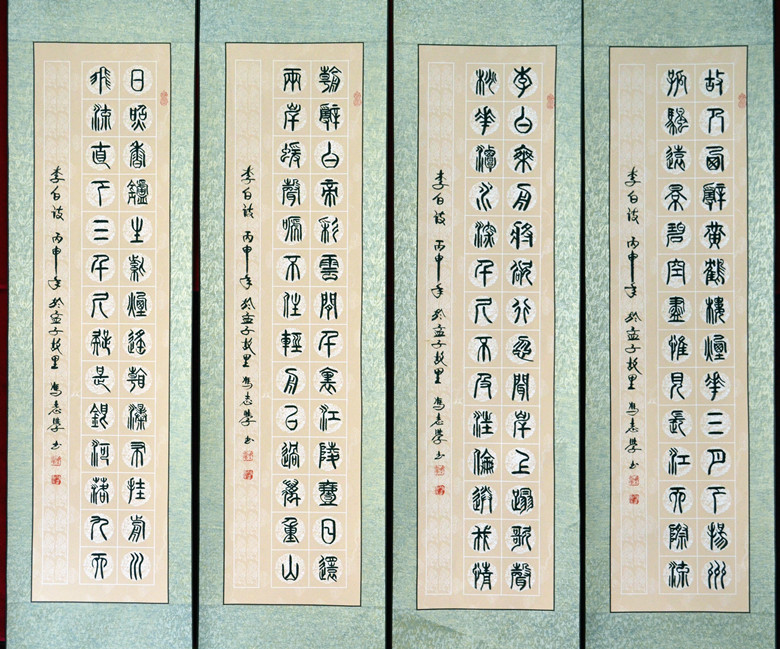 故人西辭黃鶴樓煙花三月下揚州
孤颿遠景碧空盡惟見長江天際流
李白詩 丙申年於孟子故里 馮志學書
李白乘舟將欲行忽聞岸上蹋歌聲
桃花潭水深千尺不及汪倫送我情
李白詩 丙申年於孟子故里 馮志學書
朝辭白帝彩雲間千裏江陵壹日還
兩岸蝯聲啼不住輕舟已過萬重山
李白詩 丙申年於孟子故里 馮志學書
日照香爐生紫煙遙看瀑布挂前川
飛流直下三千尺疑是銀河落九天
李白詩 丙申年於孟子故里 馮志學書